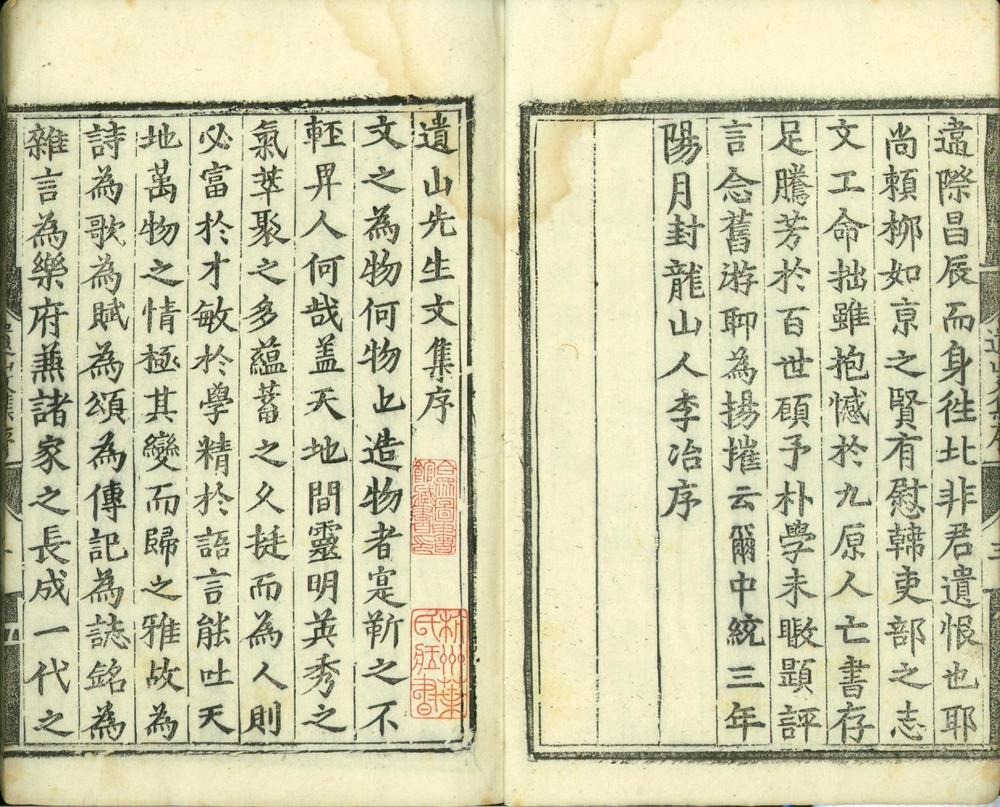 遽際昌辰而身徃北非君遺恨也耶
尚頼栁如京之賢有慰韓吏部之志
文工命拙雖抱憾於九原人亡書存
足騰芳於百世碩予朴學未㪇題評
言念舊游聊為揚搉云爾中統三年
陽月封龍山人李冶序
遺山先生文集序
文之為物何物也造物者寔靳之不
輕畀人何哉盖天地間靈明英秀之
氣萃聚之多蘊蓄之久挺而為人則
必富於才敏於學精於語言能吐天
地萬物之情極其變而歸之雅故為
詩為歌為賦為頌為傳記為誌銘為
雜言為樂府兼諸家之長成一代之